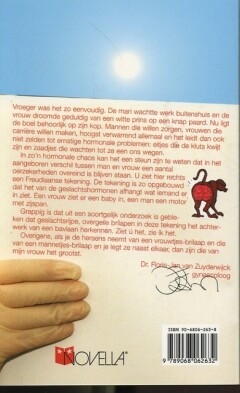 Vroeger was het zo eenvoudig. De man wachtte werk buitenshuis en de
vrouw droomde geduldig van een witte prins op een knap paard. Nu ligt
de boel behoorlijk op zijn kop. Mannen die willen zorgen, vrouwen die
carrière willen maken, hoogst verwarrend allemaal en het leidt dan ook
niet zelden tot ernstige hormonale problemen: eitjes die de kluts kwijt
zijn en zaadjes die wachten tot ze een ons wegen.
In zo'n hormonale chaos kan het een steun zijn te weten dat in het
aangeboren verschil tussen man en vrouw een aantal
oerzekerheden overeind is blijven staan. U ziet hier rechts
een Freudiaanse tekening. De tekening is zo opgebouwd
dat het van de geslachtshormonen afhangt wat iemand er
in ziet. Een vrouw ziet er een baby in, een man een motor
met zijspan.
Grappig is dat uit een soortgelijk onderzoek is geble-
ken dat geslachtsrijpe, overgeile brilapen in deze tekening het achter-
werk van een baviaan herkennen. Ziet u het, zie ik het.
Overigens, als je de hersens neemt van een vrouwtjes-brilaap en die
van een mannetjes-brilaap en je legt ze naast elkaar, dan zijn die van
mijn vrouw het grootst.
Dr. Floris-Jan van Zuyderwijck
gynaecoloog
NOVELLA
ISBN 90-6806-263-8
9 789068 062632